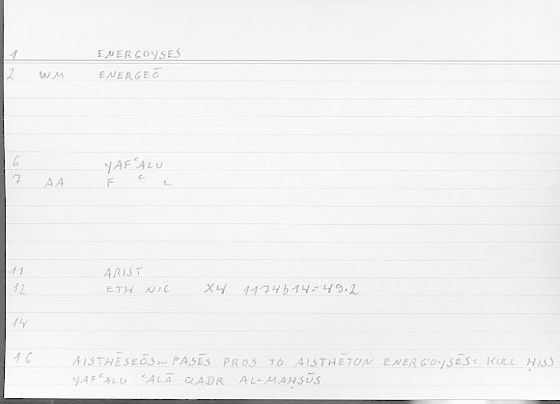 1 ENERGOYSES
2 WM ENERGEŌ
6 YAFʿALU
7 AA F ʿ L
11 ARIST
12 ETH NIC X4 1174b14=49.2
14
16 AISTHĒSEŌS PASĒS PROS TO AISTHĒTON ENERGOYSĒS= KULL ḤISS
YAFʿALU ʿALĀ QADR AL-MAḤSŪS